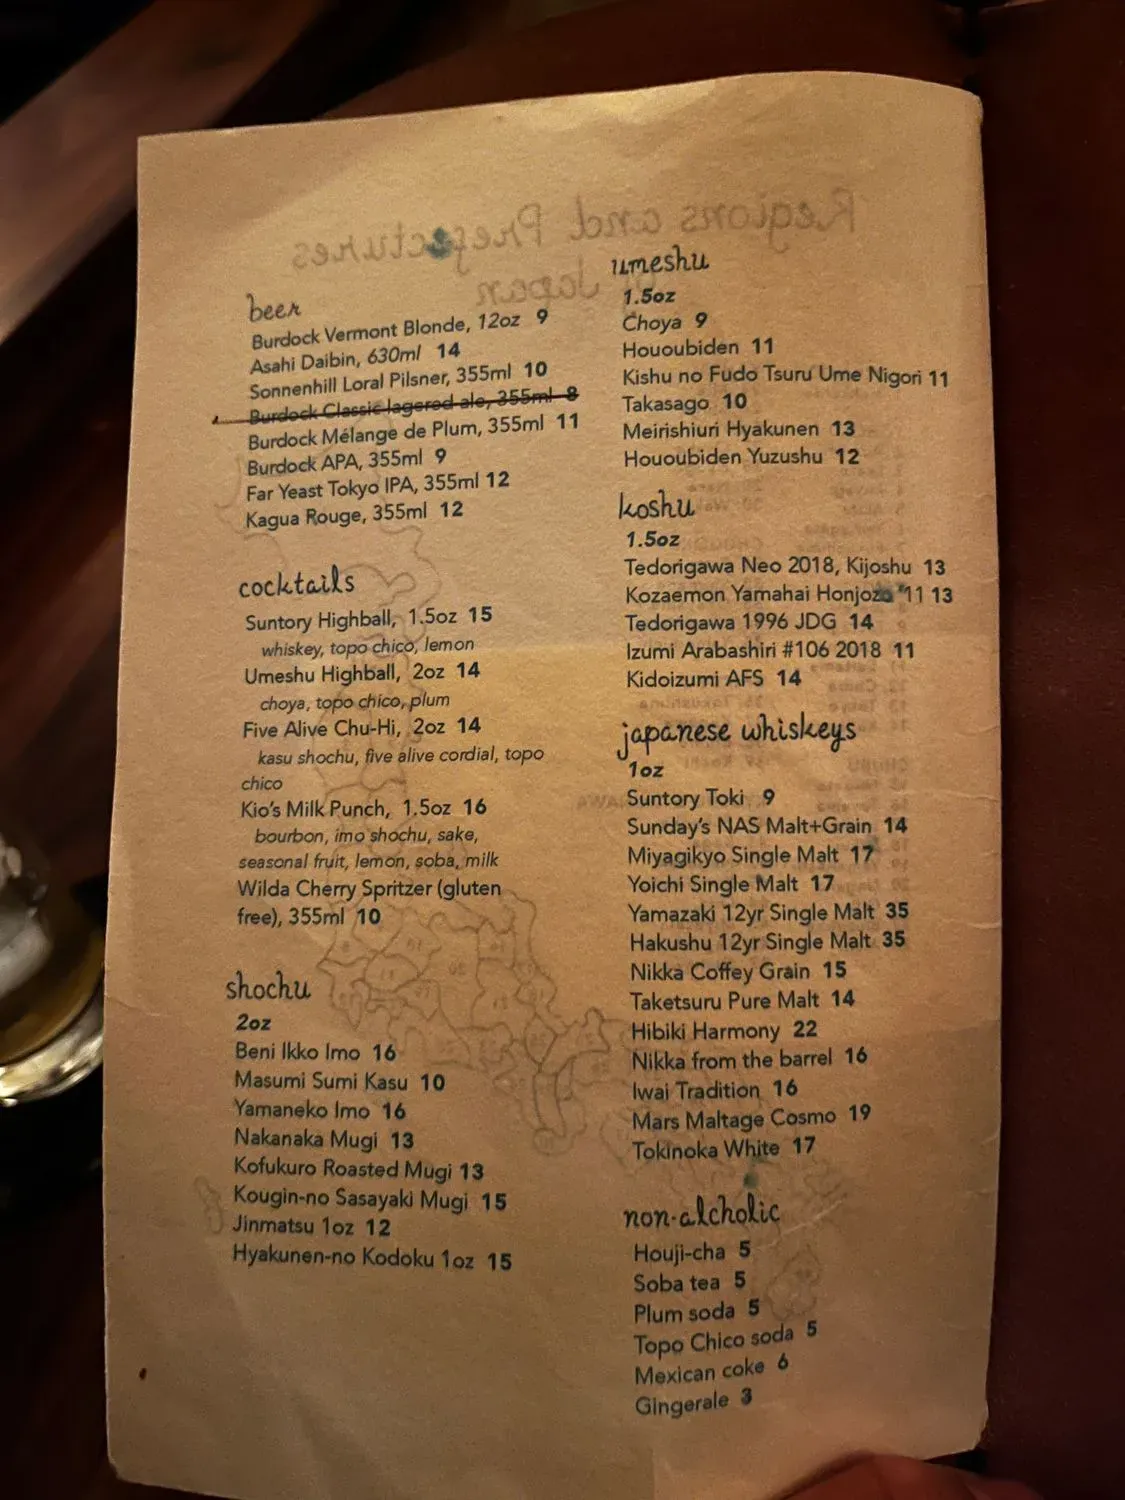 Regions and Prefectures
Japan
beer
Burdock Vermont Blonde, 12oz 9
Asahi Daibin, 630ml 14
Sonnenhill Loral Pilsner, 355ml 10
Burdock Classic lagered ale, 355ml 8
Burdock Mélange de Plum, 355ml 11
Burdock APA, 355ml 9
Far Yeast Tokyo IPA, 355ml 12
Kagua Rouge, 355ml 12
cocktails
Suntory Highball, 1.5oz 15
whiskey, topo chico, lemon
Umeshu Highball, 2oz 14
choya, topo chico, plum
Five Alive Chu-Hi, 2oz 14
kasu shochu, five alive cordial, topo
chico
Kio's Milk Punch, 1.5oz 16
bourbon, imo shochu, sake,
seasonal fruit, lemon, soba, milk
Wilda Cherry Spritzer (gluten
free), 355ml 10
shochu
2oz
Beni Ikko Imo 16
Masumi Sumi Kasu 10
Yamaneko Imo 16
Nakanaka Mugi 13
Kofukuro Roasted Mugi 13
Kougin-no Sasayaki Mugi 15
Jinmatsu 1oz 12
Hyakunen-no Kodoku 1oz 15
umeshu
1.5oz
Choya 9
Hououbiden 11
Kishu no Fudo Tsuru Ume Nigori 11
Takasago 10
Meirishiuri Hyakunen 13
Hououbiden Yuzushu 12
koshu
1.5oz
Tedorigawa Neo 2018, Kijoshu 13
Kozaemon Yamahai Honjozo '11 13
Tedorigawa 1996 JDG 14
Izumi Arabashiri #106 2018 11
Kidoizumi AFS 14
japanese whiskeys
1oz
Suntory Toki 9
Sunday's NAS Malt+Grain 14
Miyagikyo Single Malt 17
Yoichi Single Malt 17
Yamazaki 12yr Single Malt 35
Hakushu 12yr Single Malt 35
Nikka Coffey Grain 15
Taketsuru Pure Malt 14
Hibiki Harmony 22
Nikka from the barrel 16
Iwai Tradition 16
Mars Maltage Cosmo 19
Tokinoka White 17
non-alcholic
Houji-cha 5
Soba tea 5
Plum soda 5
Topo Chico soda 5
Mexican coke 6
Gingerale 3